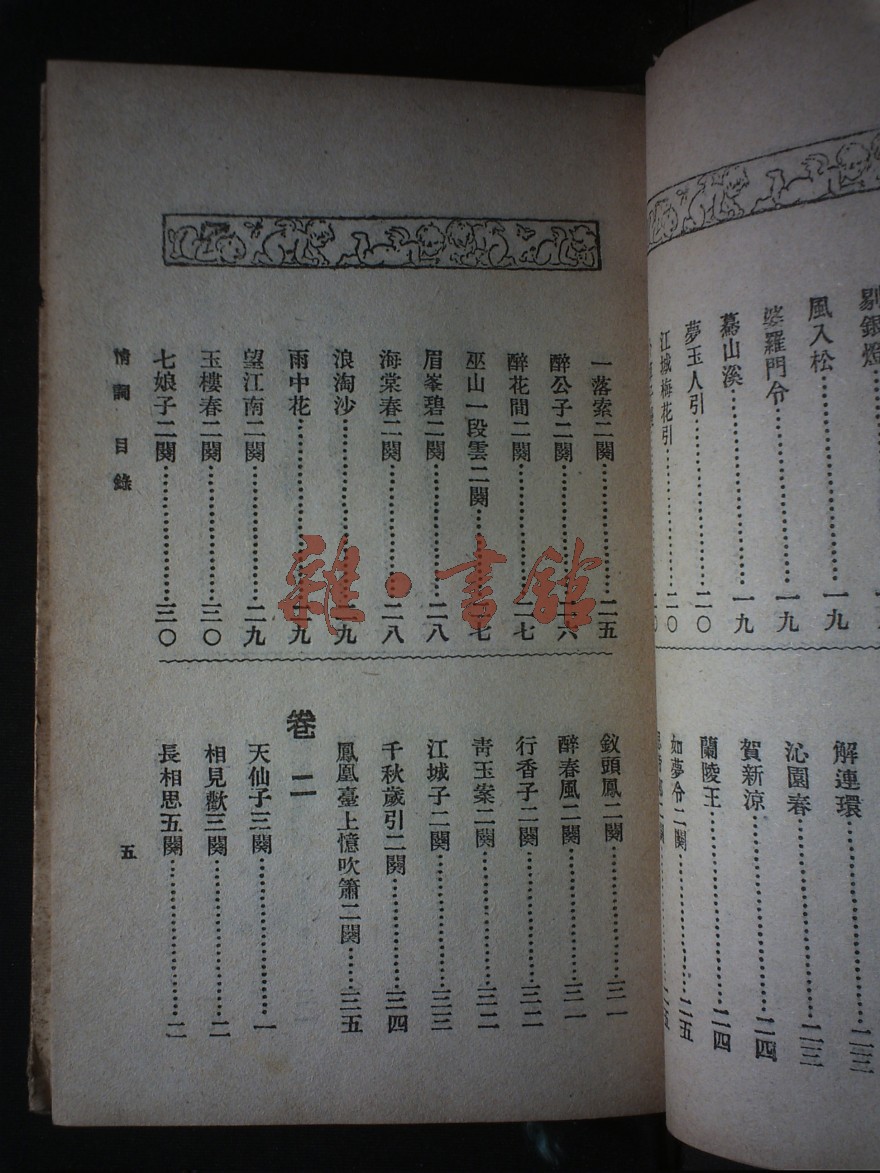 剔銀燈
風入松……一九
婆羅門令……一九
驀山溪……一九
夢玉人引……二〇
江城梅花引……二〇
解連環……二三
沁園春……二三
賀新涼……二四
蘭陵王……二四
如夢令二闋……二五
一落索二闋……二五
醉公子二闋……二六
醉花間二闋……二七
巫山一段雲二闋……二七
眉峯碧二闋……二八
海棠春二闋……二八
浪淘沙……二九
雨中花……二九
望江南二闋……二九
玉樓春二闋……三〇
七娘子二闋……三〇
釵頭鳳二闋……三一
醉春風二闋……三一
行香子二闋……三二
青玉案二闋……三二
江城子二闋……三三
千秋歲引二闋……三四
鳳凰臺上憶吹簫二闋……三五
卷二
天仙子三闋……一
相見歡三闋……二
長相思五闋……二
情詞 目錄
五
雜·書館